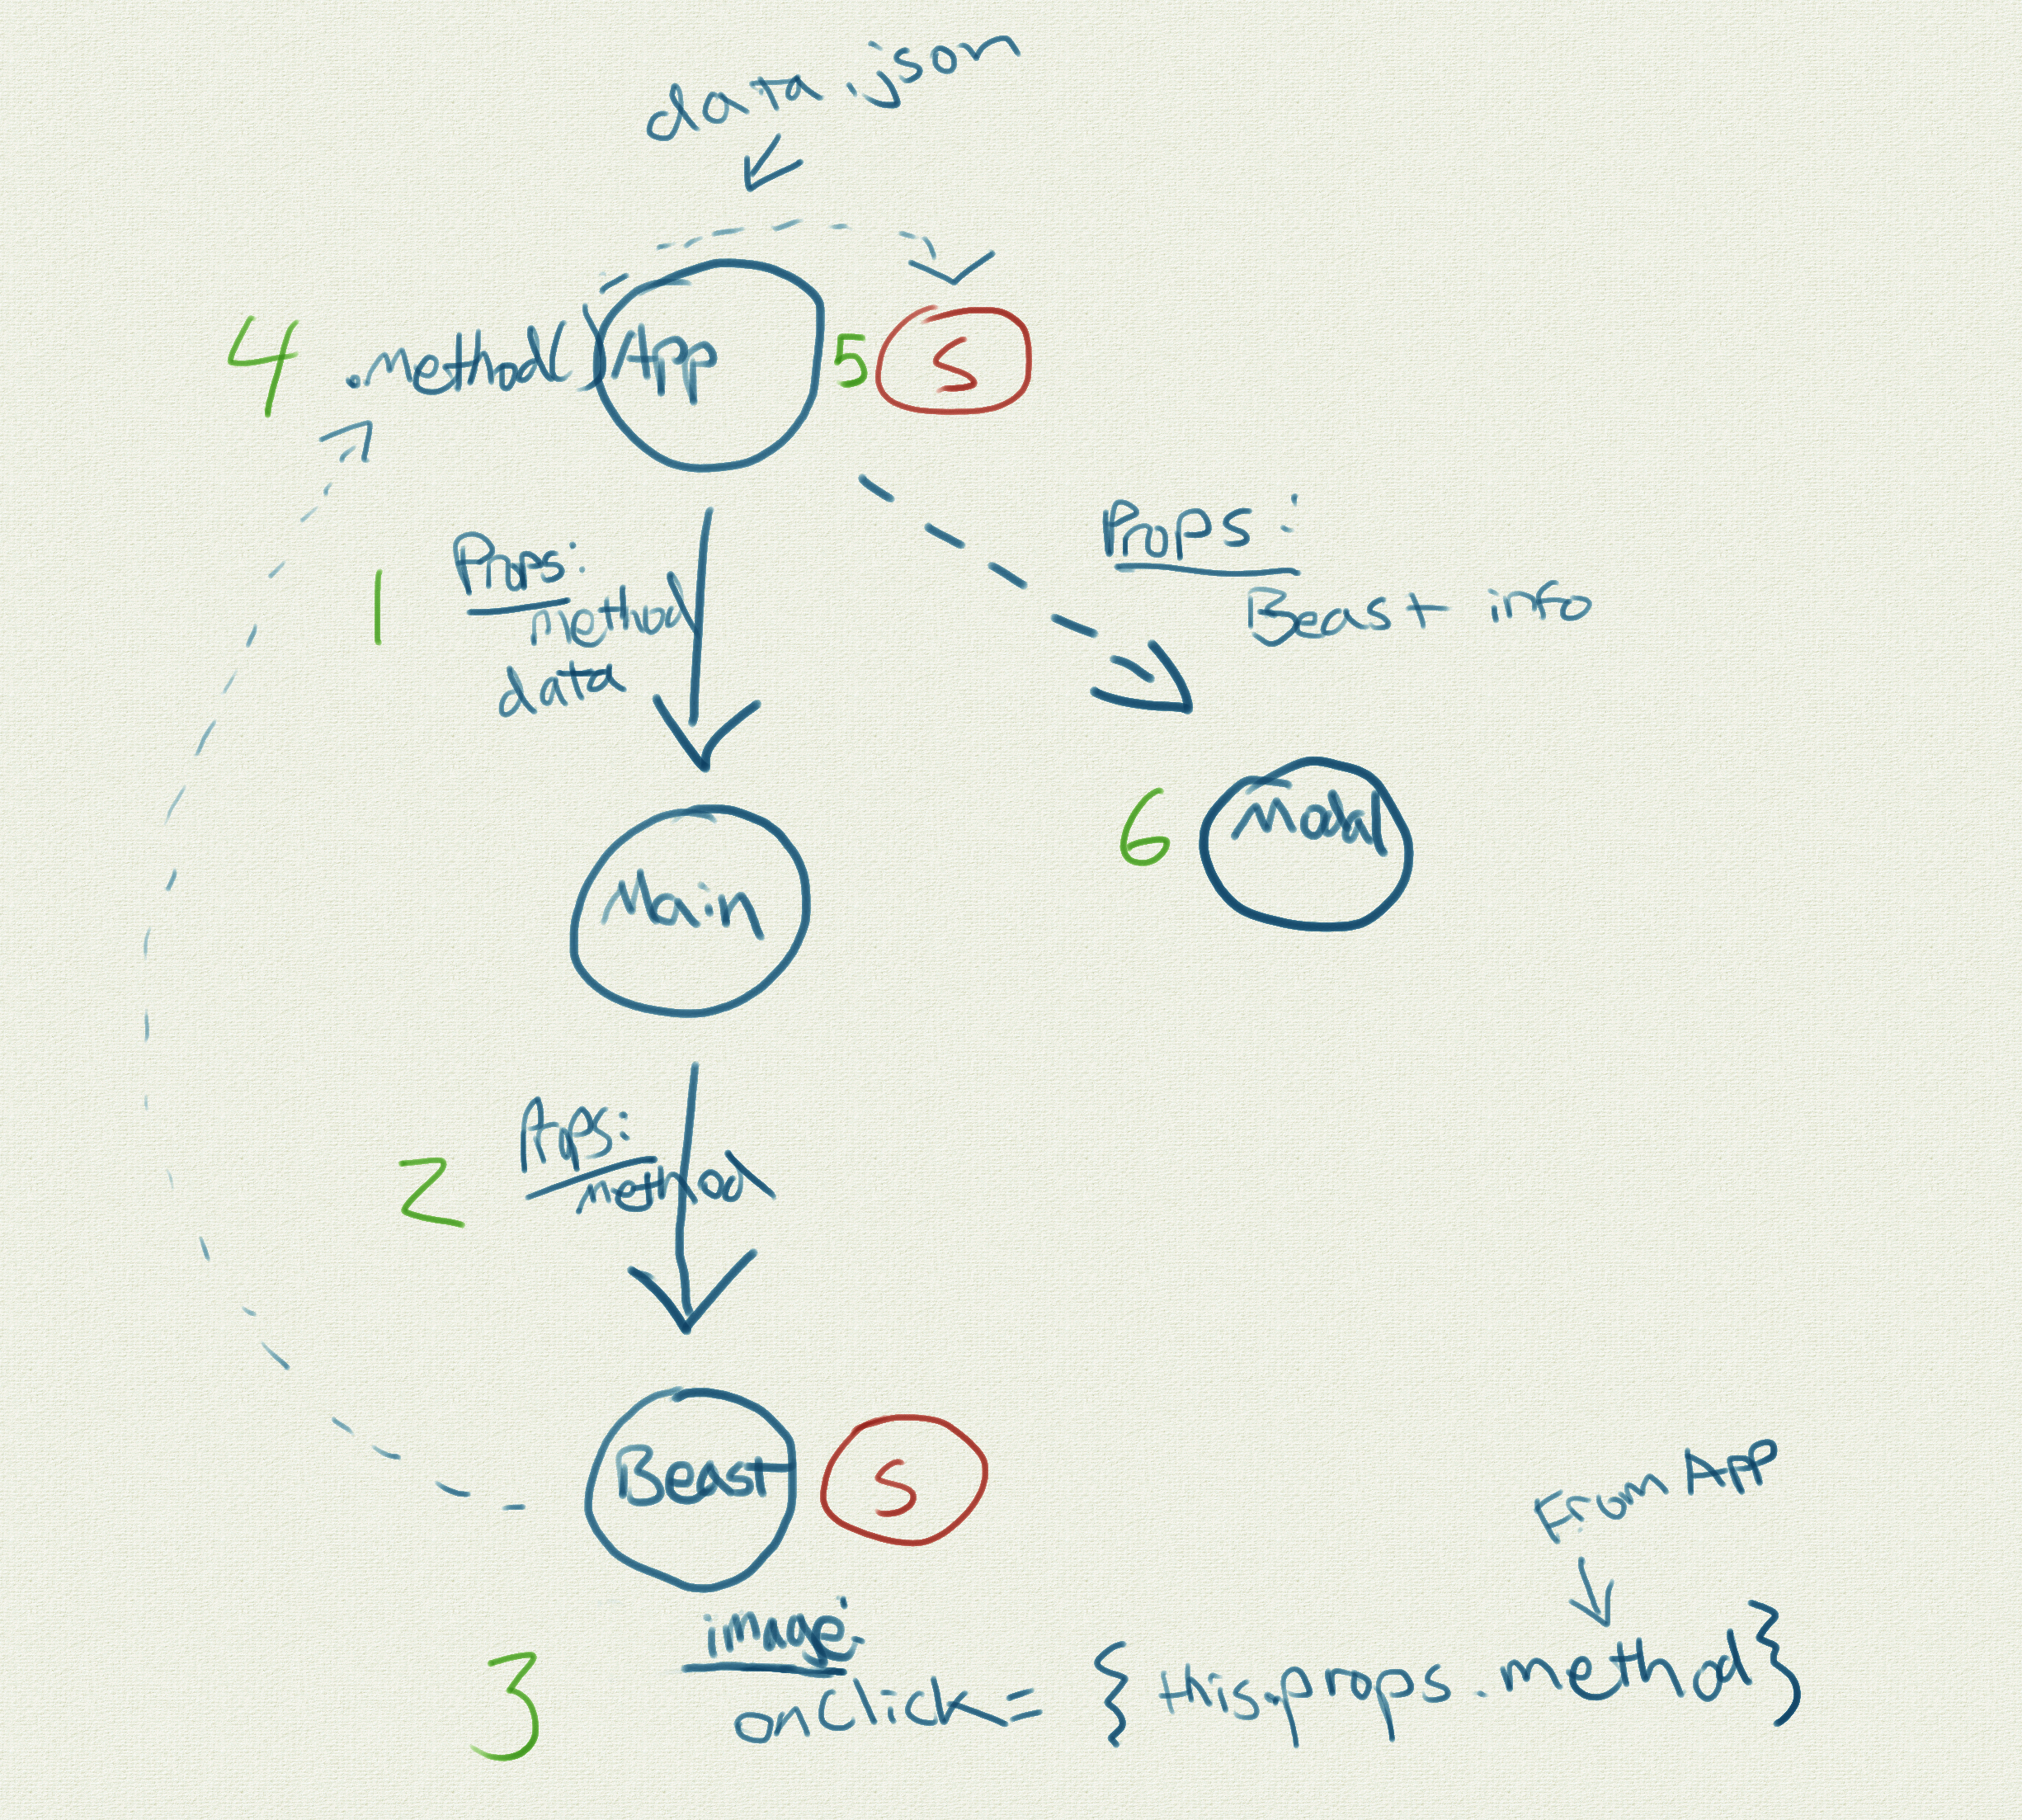 data.json
4
.method()
App
5
S
1
Props:
method
data
Props:
Beast info
Main
6
Modal
2
Props:
method
Beast
S
From App
3
image:
onClick= {this.props.method}